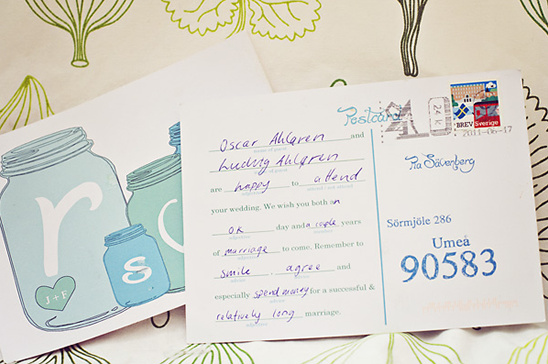 r
s
J + E
Postcard
BREV Sverige
2011-06-17
Oscar Ahlgren and
Ludvig Ahlgren
are happy to attend
your wedding. We wish you both an
OK day and a couple years
of marriage to come. Remember to
smile, agree and
especially spend money for a successful &
relatively long marriage.
Pia Sävenberg
Sörmjöle 286
Umeå
90583